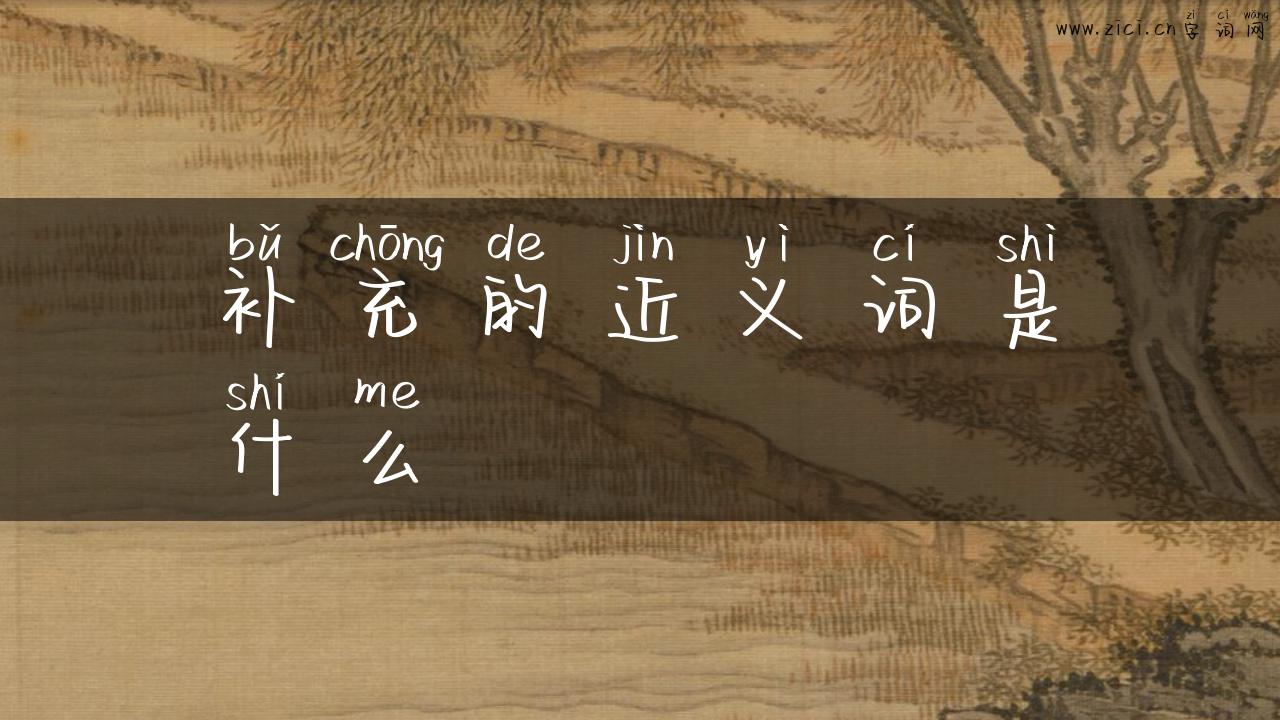 zì cí wǎng
www.zici.cn 字词网
bǔ chōng de jìn yì cí shì
补充的近义词是
shí me
什么